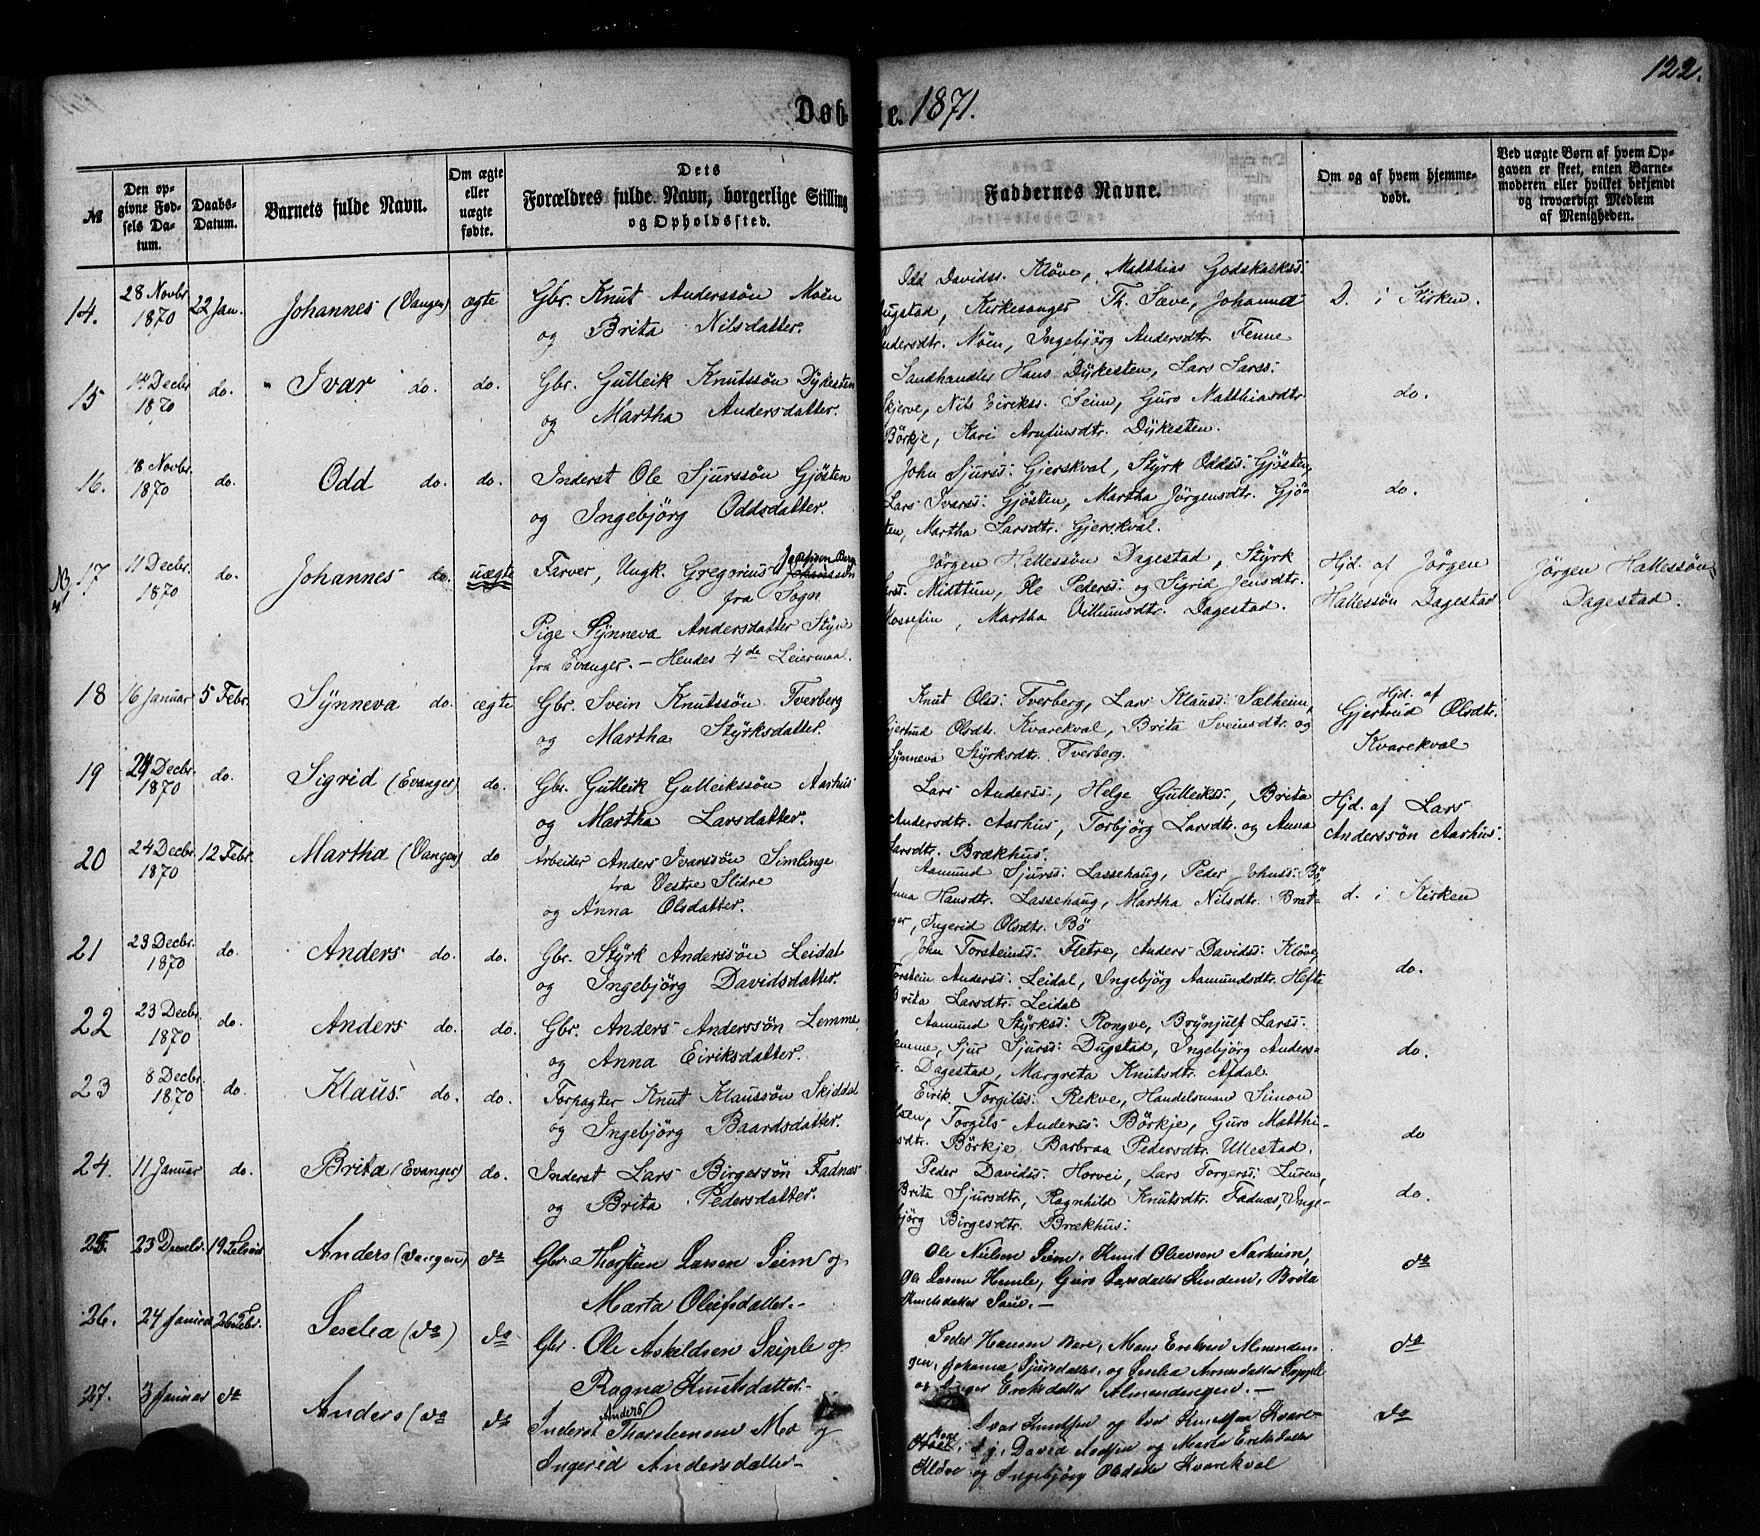 122.
Døbte. 1871.
№
Den opgivne Fødsels Datum.
Daabs-Datum.
Barnets fulde Navn.
Om ægte eller uægte fødte.
Dets Forældres fulde Navn, borgerlige Stilling og Opholdssted.
Faddernes Navne.
Om og af hvem hjemmedøbt.
Ved uægte Børn af hvem Opgaven er skeet, enten Barnemoderen eller hvilket bekjendt og troværdigt Medlem af Menigheden.
14. 28 Novbr. 1870 22 Jan. Johannes (Vangen) ægte
Gbr. Knut Anderssøn Moën
og Brita Nilsdatter.
Odd Davidss. Kløve, Matthias Godskalkss:
Dugstad, Kirkesanger Th. Sæve, Johanna
Andersdtr. Nöen, Ingebjörg Andersdtr. Fenne
D. i Kirken.
15 14 Decbr. 1870 do. Ivar do. do.
Gbr. Gulleik Knutssøn Dÿkesten
og Martha Andersdatter.
Landhandler Hans Dÿkesten, Lars Larss:
Skjerve, Nils Eirikss. Seim, Guro Matthiasdtr.
Börkje, Kari Arnfinsdtr. Dÿkesten.
do.
16. 18 Novbr. 1870 do. Odd do. do.
Inderst Ole Sjurssøn Gjösten
og Ingebjörg Oddsdatter.
John Sjurss: Gjerskval, Stÿrk Oddss: Gjösten,
Lars Ivarss: Gjösten, Martha Jörgensdtr. Gjö-
sten, Martha Larsdtr. Gjerskval.
do.
NB 17 11 Decbr. 1870 do. Johannes do. uægte
Farver, Ungk. Gregorius Johanssøn
fra Sogn
Pige Sÿnneva Andersdatter
fra Evanger. — Hendes 4de Leiermaal.
Jörgen Hallessøn Dagestad, Stÿrk
Midttun, Ole Pederss: og Sigrid Jensdtr.
Mossefin, Martha Dagestad.
Hjd. af Jörgen
Hallessøn Dagestad
Jörgen Hallessøn
Dagestad.
18 16 Januar 5 Febr. Sÿnneva do. ægte
Gbr. Svein Knutssøn Tverberg
og Martha Stÿrksdatter.
Knut Olss: Tverberg, Lars Klauss: Sælheim,
Gjertrud Olsdtr. Kvarekval, Brita Sveinsdtr. og
Sÿnneva Stÿrksdtr. Tverberg.
Hjd. af
Gjertrud Olsdtr.
Kvarekval
19 24 Decbr. 1870 do. Sigrid (Evanger) do.
Gbr. Gulleik Gulleikssøn Aarhus
og Martha Larsdatter.
Lars Anderss:, Helge Gulleikss:, Brita
Andersdtr. Aarhus, Torbjörg Larsdtr. og Anna
Larsdtr. Brækhus.
Hjd. af Lars
Anderssøn Aarhus.
20 24 Decbr. 1870 12 Febr. Martha (Vangen) do
Arbeider Anders Ivarssøn Simlinge
fra Vestre Slidre
og Anna Olsdatter.
Aamund Sjurss: Lassehaug, Peder Johnss: Bö,
Anna Hansdtr. Lassehaug, Martha Nilsdtr. Brat-
ger, Ingerid Olsdtr. Bö
d. i Kirken
21 23 Decbr. 1870 do. Anders do. do.
Gbr. Stÿrk Anderssøn Leidal
og Ingebjörg Davidsdatter.
John Torsteinss: Fletre, Anders Davidss: Klöve,
Torstein Anderss: Leidal, Ingebjörg Aamundsdtr. Hefte
Brita Larsdtr. Leidal
do.
22 23 Decbr. 1870 do. Anders do. do.
Gbr. Anders Anderssøn Lemme,
og Anna Eiriksdatter.
Aamund Stÿrkss: Rongve, Brÿnjulf Larss:
Lemme, Sjur Sjurss: Dugstad, Ingebjörg Anders-
dtr. Dagestad, Margreta Knutsdtr. Afdal
do.
23 8 Decbr. 1870 do. Klaus do. do.
Forpagter Knut Klaussøn Skiddal
og Ingebjörg Baardsdatter.
Eirik Torgilss: Rekve, Handelsmand Simon
Olsen, Torgils Anderss: Börkje, Guro Matthi-
asdtr. Börkje, Barbraa Pedersdtr. Ullestad.
do
24. 11 Januar do. Brita (Evanger) do.
Inderst Lars Birgessøn Fadnæs
og Brita Pedersdatter.
Peder Davidss: Horvei, Lars Torgerss: Luren,
Brita Sjursdtr., Ragnhild Knutsdtr. Fadnæs, Inge-
björg Birgesdtr. Brækhus.
do.
25. 23 Decebr. 19 Febr. Anders (Vangen) do
Gbr. Thorsteen Larsen Seim og
Marta Olufsdatter.
Ole Nielsen Seim, Knut Olevsen Narheim,
Ole Larsen Hemle, Guro Larsdatter Kindem, Brita
Knutsdatter Saue. —
do
26. 24 Januar 26 Febr. Seselia (do) do
Gbr. Ole Askeldsen Skiple og
Ragna Knutsdatter.
Peder Hansen, Mons Eriksen Almenden-
gen, Johanna Sjursdatter, og Seselia Arnesdatter Skiple
og Inger Eriksdatter Almendengen. —
do
27. 3 Januar do Anders (do do
Inderst Anders Thorsteensen Mo og
Ingerid Andersdatter
Ivar Knutsen og Iver Knutsen Kvare-
kval, David Aadsen og Marta Eriksdatter
Kløve og Ingebjörg Olsdatter Kvarekval
do